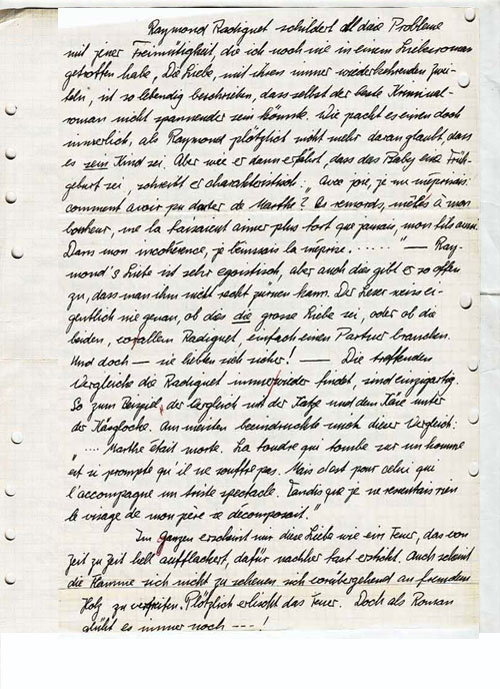 Raymond Radiguet schildert all diese Probleme
mit jener Freimütigkeit, die ich noch nie in einem Liebesroman
getroffen habe. Die Liebe, mit ihren immer wiederkehrenden Zwei-
feln, ist so lebendig beschrieben, dass selbst der beste Kriminal-
roman nicht spannender sein könnte. Wie packt es einen doch
innerlich, als Raymond plötzlich nicht mehr daran glaubt, dass
es sein Kind sei. Aber wie er dann erfährt, dass das Baby eine Früh-
geburt sei, schreibt er charakteristisch: „Avec joie, je me méprisais.
comment avoir pu douter de Marthe? Ces remords, mêlés à mon
bonheur, me la faisaient aimer plus fort que jamais, mon fils aussi.
Dans mon incohérence, je bénissais la méprise. ......" — Ray-
mond's Liebe ist sehr egoistisch, aber auch dies gibt er so offen
zu, dass man ihm nicht recht zürnen kann. Der Leser weiss ei-
gentlich nie genau, ob dies die grosse Liebe sei, oder ob die
beiden, vorallem Radiguet, einfach einen Partner brauchen.
Und doch — sie liebten sich sicher! — Die treffenden
Vergleiche die Radiguet immer wieder findet, sind einzigartig.
So zum Beispiel, der Vergleich mit der Katze und dem Käse unter
der Käseglocke. Am meisten beeindruckte mich dieser Vergleich:
".... Marthe était morte. La foudre qui tombe sur un homme
est si prompte qu'il ne souffre pas. Mais c'est pour celui qui
l'accompagne un triste spectacle. Tandis que je ne ressentais rien
le visage de mon père se décomposait."
Im Ganzen erscheint mir diese Liebe wie ein Feuer, das von
Zeit zu Zeit hell aufflackert, dafür nachher fast erstickt. Auch scheint
die Flamme sich nicht zu scheuen sich vorübergehend an fremdem
Holz zu Plötzlich erlischt das Feuer. Doch als Roman
glüht es immer noch ---!